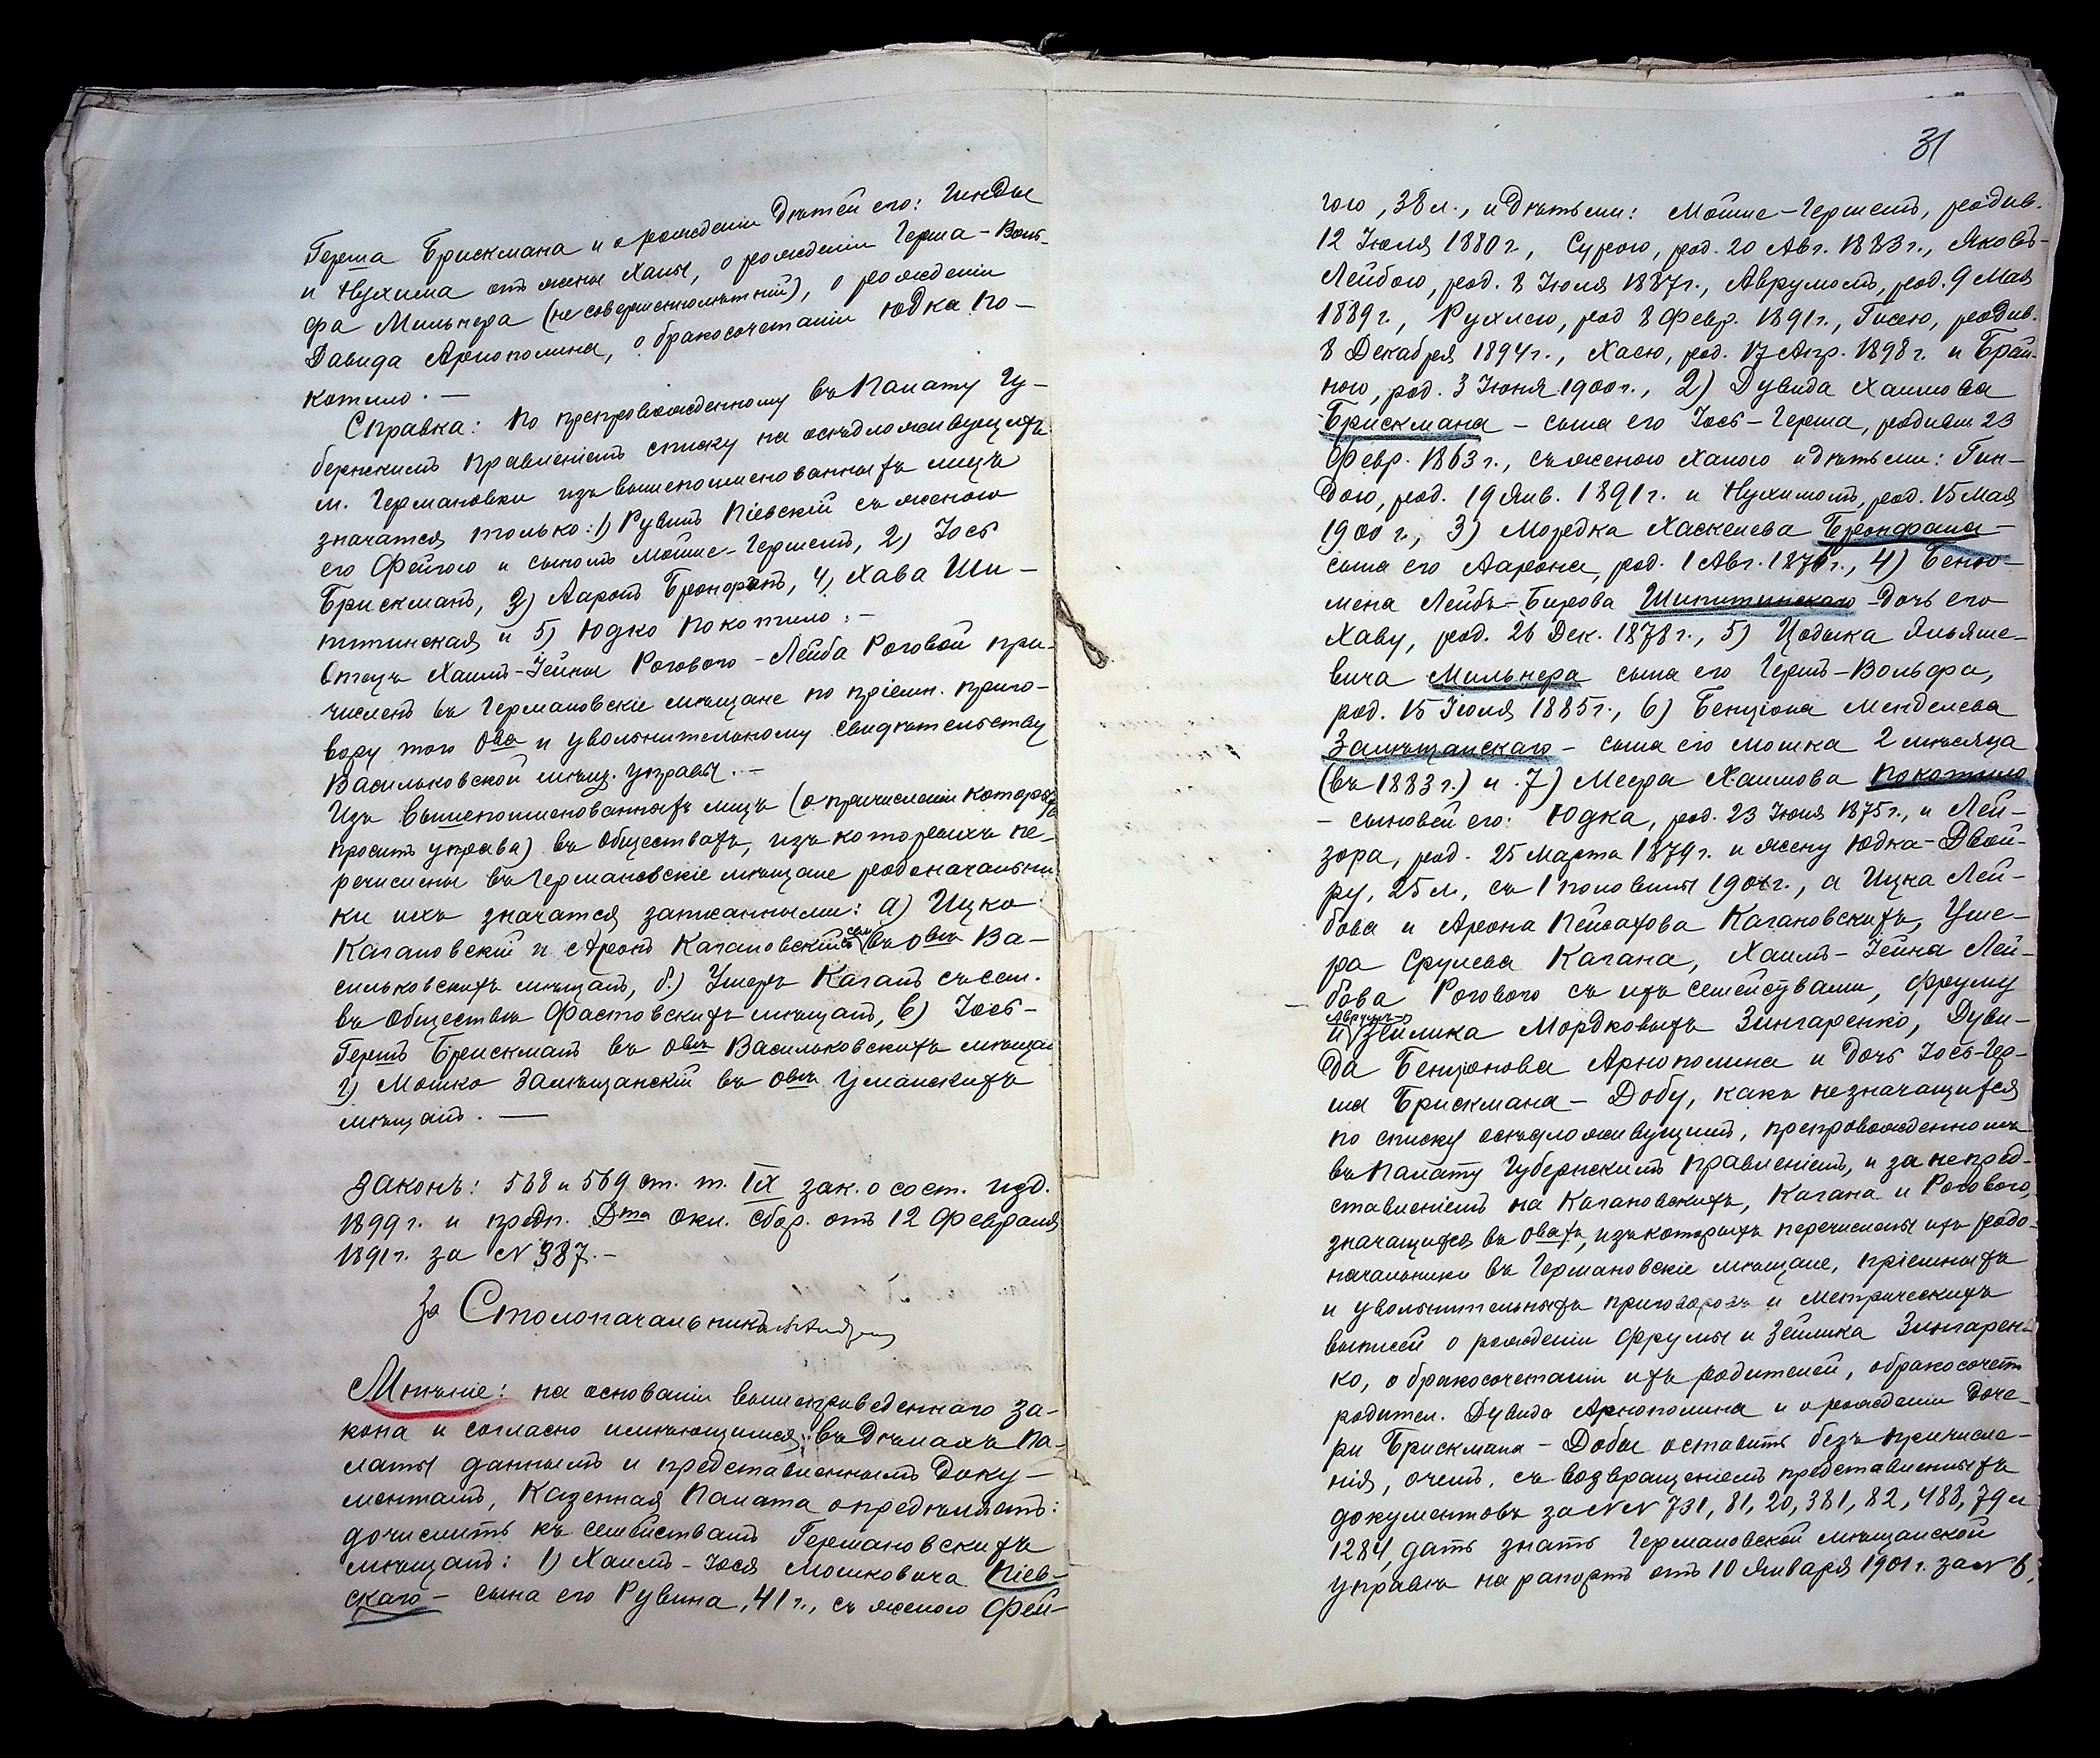 Герша Брискмана и о рожденіи дѣтей его: Гинды
и Нухима отъ жены Ханы, о рожденіи Герша-Воль-
фа Мильнера (несовершеннолѣтній), о рожденіи
Давида Арнополина, о бракосочетаніи Юдка По-
котило. —
Справка: По препровожденному въ Палату Гу-
бернскимъ Правленіемъ списку на осѣдложивущихъ
м. Германовки изъ вышепоименованныхъ лицъ
значатся только: 1) Рувинъ Кіевскій съ женою
его Фейгою и сыномъ Мойше-Гершемъ, 2) Іось
Брискманъ, 3) Ааронъ Бронфанъ, 4) Хава Ши-
питинская и 5) Юдко Покотило. —
Отецъ Хаимъ-Іейны Рогового - Лейба Роговой при-
численъ въ Германовскіе мѣщане по пріемн. приго-
вору того Ова и увольнительному свидѣтельству
Васильковской мѣщ. управы. —
Изъ вышепоименованныхъ лицъ (о причисленіи которыхъ
проситъ управа) въ обществахъ, изъ которыхъ пе-
речислены въ Германовскіе мѣщане родоначальни
ки ихъ значатся записанными: а) Ицко
Кагановскій и Аронъ Кагановскій съ сем. въ Овѣ Ва-
сильковскихъ мѣщанъ, б) Ушеръ Каганъ съ сем.
въ обществѣ Фастовскихъ мѣщанъ, в) Іось-
Гершъ Брискманъ въ Овѣ Васильковскихъ мѣщан
г) Мошко Замѣщанскій въ Овѣ Уманскихъ
мѣщанъ. —
Законъ: 568 и 569 ст. т. IX зак. о сост. изд.
1899 г. и предп. Дта Окл. Сбор. отъ 12 Февраля
1891 г. за № 987. —
За Столоначальника
Мнѣніе: на основаніи вышеприведеннаго за-
кона и согласно имѣющимся въ дѣлахъ Па-
латы даннымъ и представленнымъ доку-
ментамъ, Казенная Палата опредѣляетъ:
дочислить къ семействамъ Германовскихъ
мѣщанъ: 1) Хаимъ-Іося Мошковича Кіев-
скаго - сына его Рувина, 41 г., съ женою Фей-
31
гою, 38 л., и дѣтьми: Мойше-Гершемъ, родив.
12 Іюля 1880 г., Сурою, род. 20 Авг. 1883 г., Яковъ-
Лейбою, род. 8 Іюля 1887 г., Аврумомъ, род. 9 Мая
1889 г., Рухлею, род 8 Февр. 1891 г., Гисею, родив.
8 Декабря 1894 г., Хаею, род. 17 Апр. 1898 г. и Брай-
ною, род. 3 Іюня 1900 г., 2) Дувида Хаимова
Брискмана - сына его Іось-Герша, родивш 23
Февр. 1863 г., съ женою Ханою и дѣтьми: Гин-
дою, род. 19 Янв. 1891 г. и Нухимомъ, род. 15 Мая
1900 г., 3) Мордка Хаскелева Бронфана -
сына его Аарона, род. 1 Авг. 187 г., 4) Беню-
мена Лейбъ-Берова Шипитинскаго - дочь его
Хаву, род. 26 Дек. 1878 г., 5) Цодыка Эльяше-
вича Мильнера сына его Гершъ-Вольфа,
род. 15 Іюля 1885 г., 6) Бенціона Менделева
Замѣщанскаго - сына его Мошка 2 мѣсяца
(въ 1883 г.) и 7) Меера Хаимова Покотило
- сыновей его: Юдка, род. 23 Іюня 1875 г., и Лей-
зора, род. 25 Марта 1879 г. и жену Юдка - Двой-
ру, 25 л., съ 1 половины 1901 г., а Ицка Лей-
бова и Арона Пейсахова Кагановскихъ, Уше-
ра Срулева Кагана, Хаимъ-Іейна Лей-
бова Рогового съ ихъ семействами, Фруму
и Аврумъ-Зейлика Мордковыхъ Зингаренко, Дуви-
да Бенціонова Арнополина и дочь Іось-Гер-
ша Брискмана - Добу, какъ незначащихся
по списку осѣдложивущимъ, препровожденномъ
въ Палату Губернскимъ Правленіемъ, и за непред-
ставленіемъ на Кагановскихъ, Кагана и Рогового,
значащихся въ Овахъ, изъ которыхъ перечислены ихъ родо-
начальники въ Германовскіе мѣщане, пріемныхъ
и увольнительныхъ приговоровъ и метрическихъ
выписей о рожденіи Фрумы и Зейлика Зингарен-
ко, о бракосочетаніи ихъ родителей, о бракосочет
родител. Дувида Арнополина и о рожденіи доче-
ри Брискмана - Добы оставить безъ причисле-
нія, о чемъ, съ возвращеніемъ представленныхъ
документовъ за №№ 731, 81, 20, 381, 82, 488, 79 и
1284, дать знать Германовской мѣщанской
управѣ на рапортъ отъ 10 Января 1901 г. за № 6.